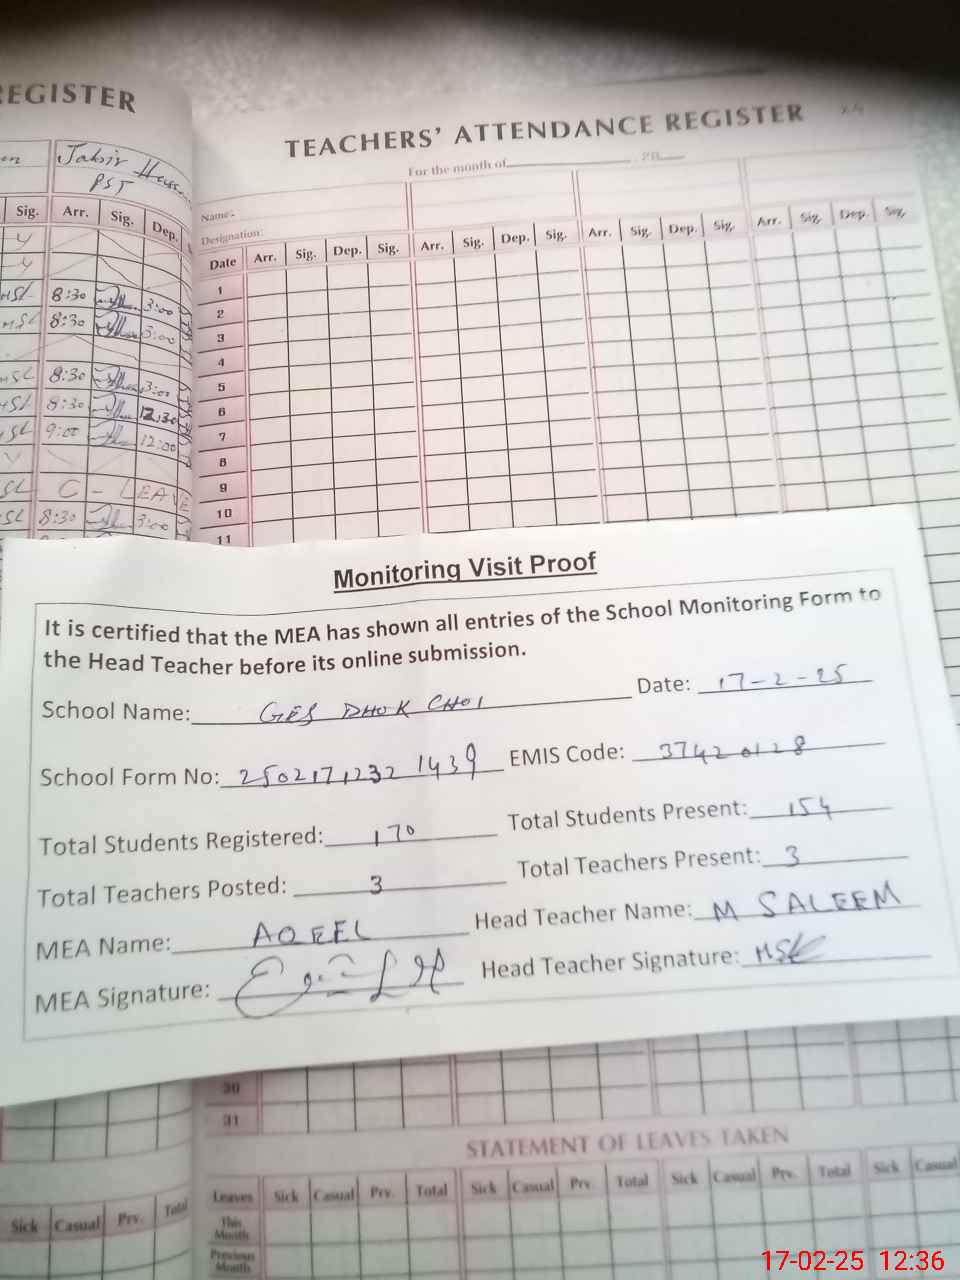 REGISTER
Jabir
PST
Sig. Arr. Sig. Dep.
8:30 3:00
MSL 8:30 3:00
8:30 3:00
8:30 12:30
9:00 12:00
C - LEAVE
8:30 3:00
TEACHERS' ATTENDANCE REGISTER
For the month of 20
Name:
Designation:
Date Arr. Sig. Dep. Sig. Arr. Sig. Dep. Sig. Arr. Sig. Dep. Sig. Arr. Sig. Dep. Sig.
1
2
3
4
5
6
7
8
9
10
11
Monitoring Visit Proof
It is certified that the MEA has shown all entries of the School Monitoring Form to
the Head Teacher before its online submission.
School Name: GES DHOK CHOI Date: 17-2-25
School Form No: 2502171232 1439 EMIS Code: 37420128
Total Students Registered: 170 Total Students Present: 154
Total Teachers Posted: 3 Total Teachers Present: 3
MEA Name: AQEEL Head Teacher Name: M SALEEM
MEA Signature: Head Teacher Signature: MSL
30
31
STATEMENT OF LEAVES TAKEN
Leaves Sick Casual Prv. Total Sick Casual Prv. Total Sick Casual Prv. Total Sick Casual
This Month
Previous Month
Sick Casual Prv. Total
17-02-25 12:36